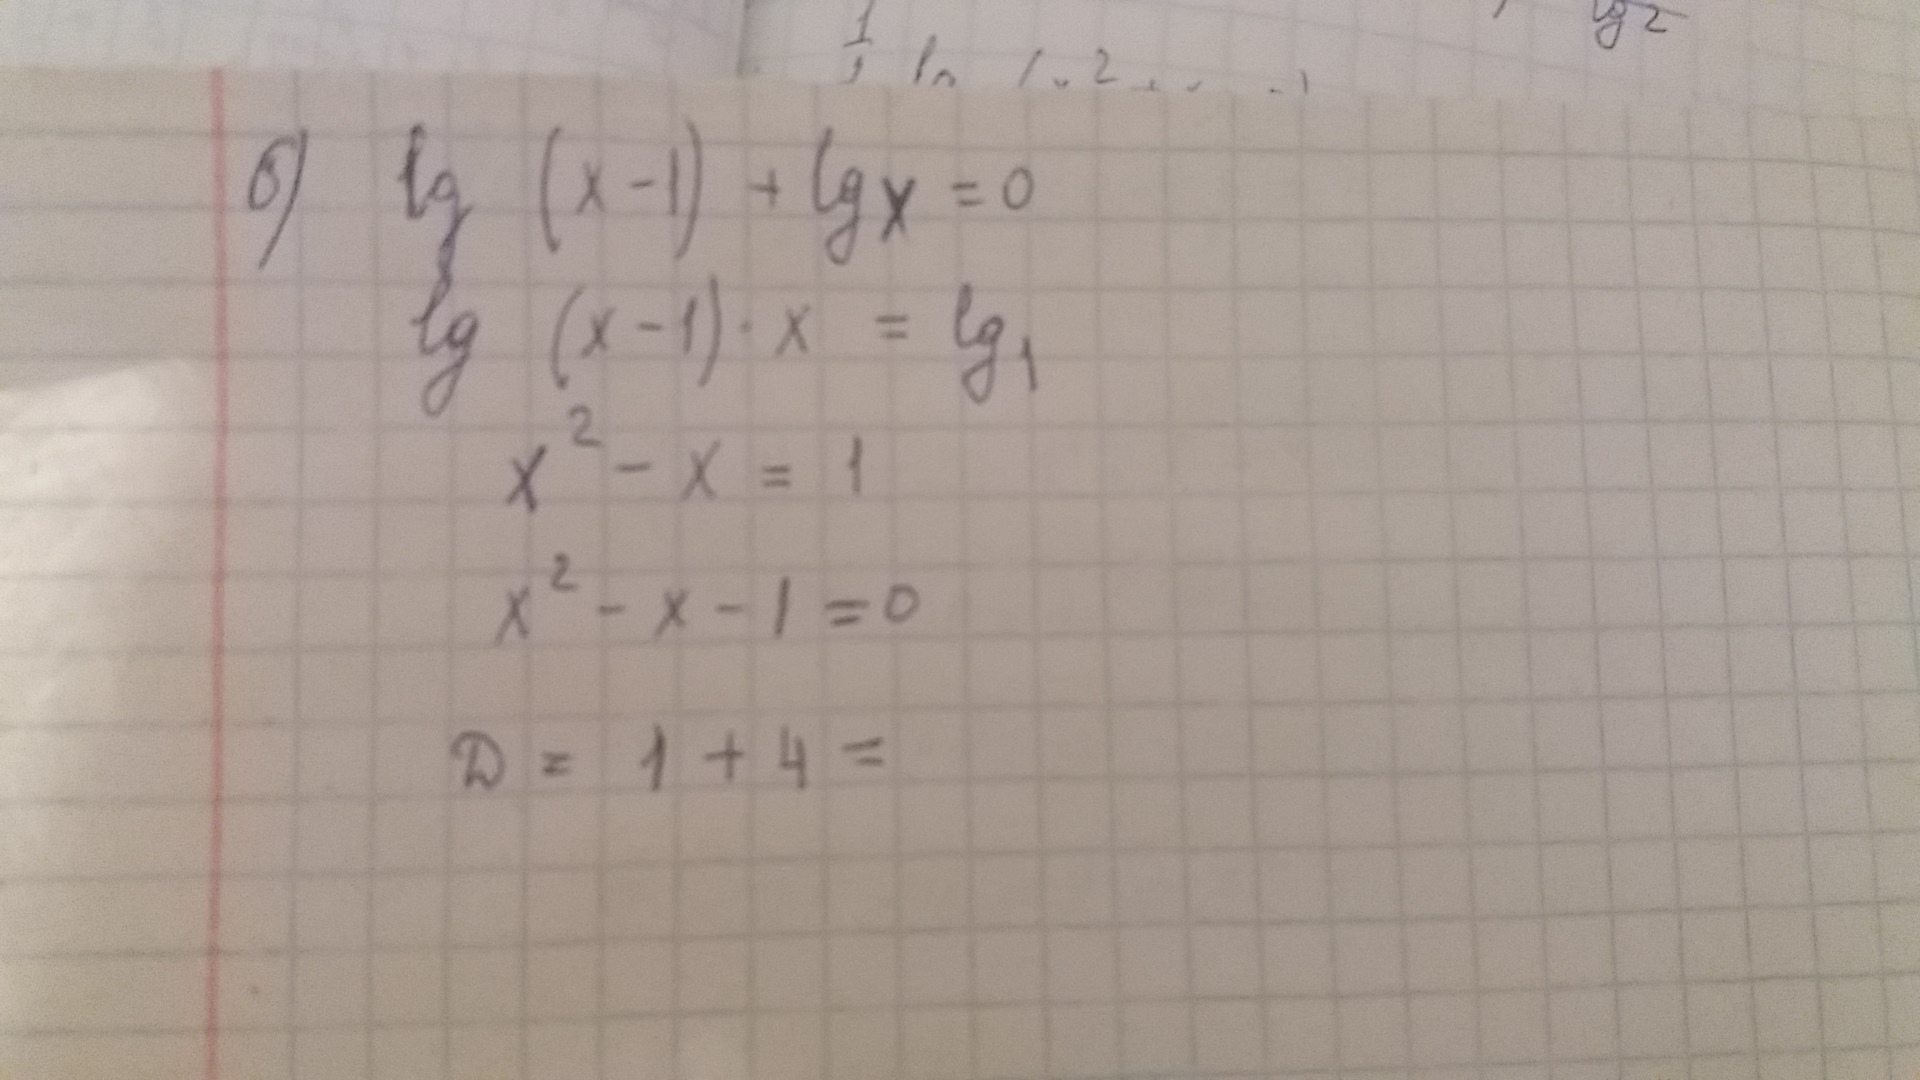 lg 2
1
ln
б) lg (x-1) + lg x = 0
lg (x-1) · x = lg 1
x² - x = 1
x² - x - 1 = 0
D = 1 + 4 =